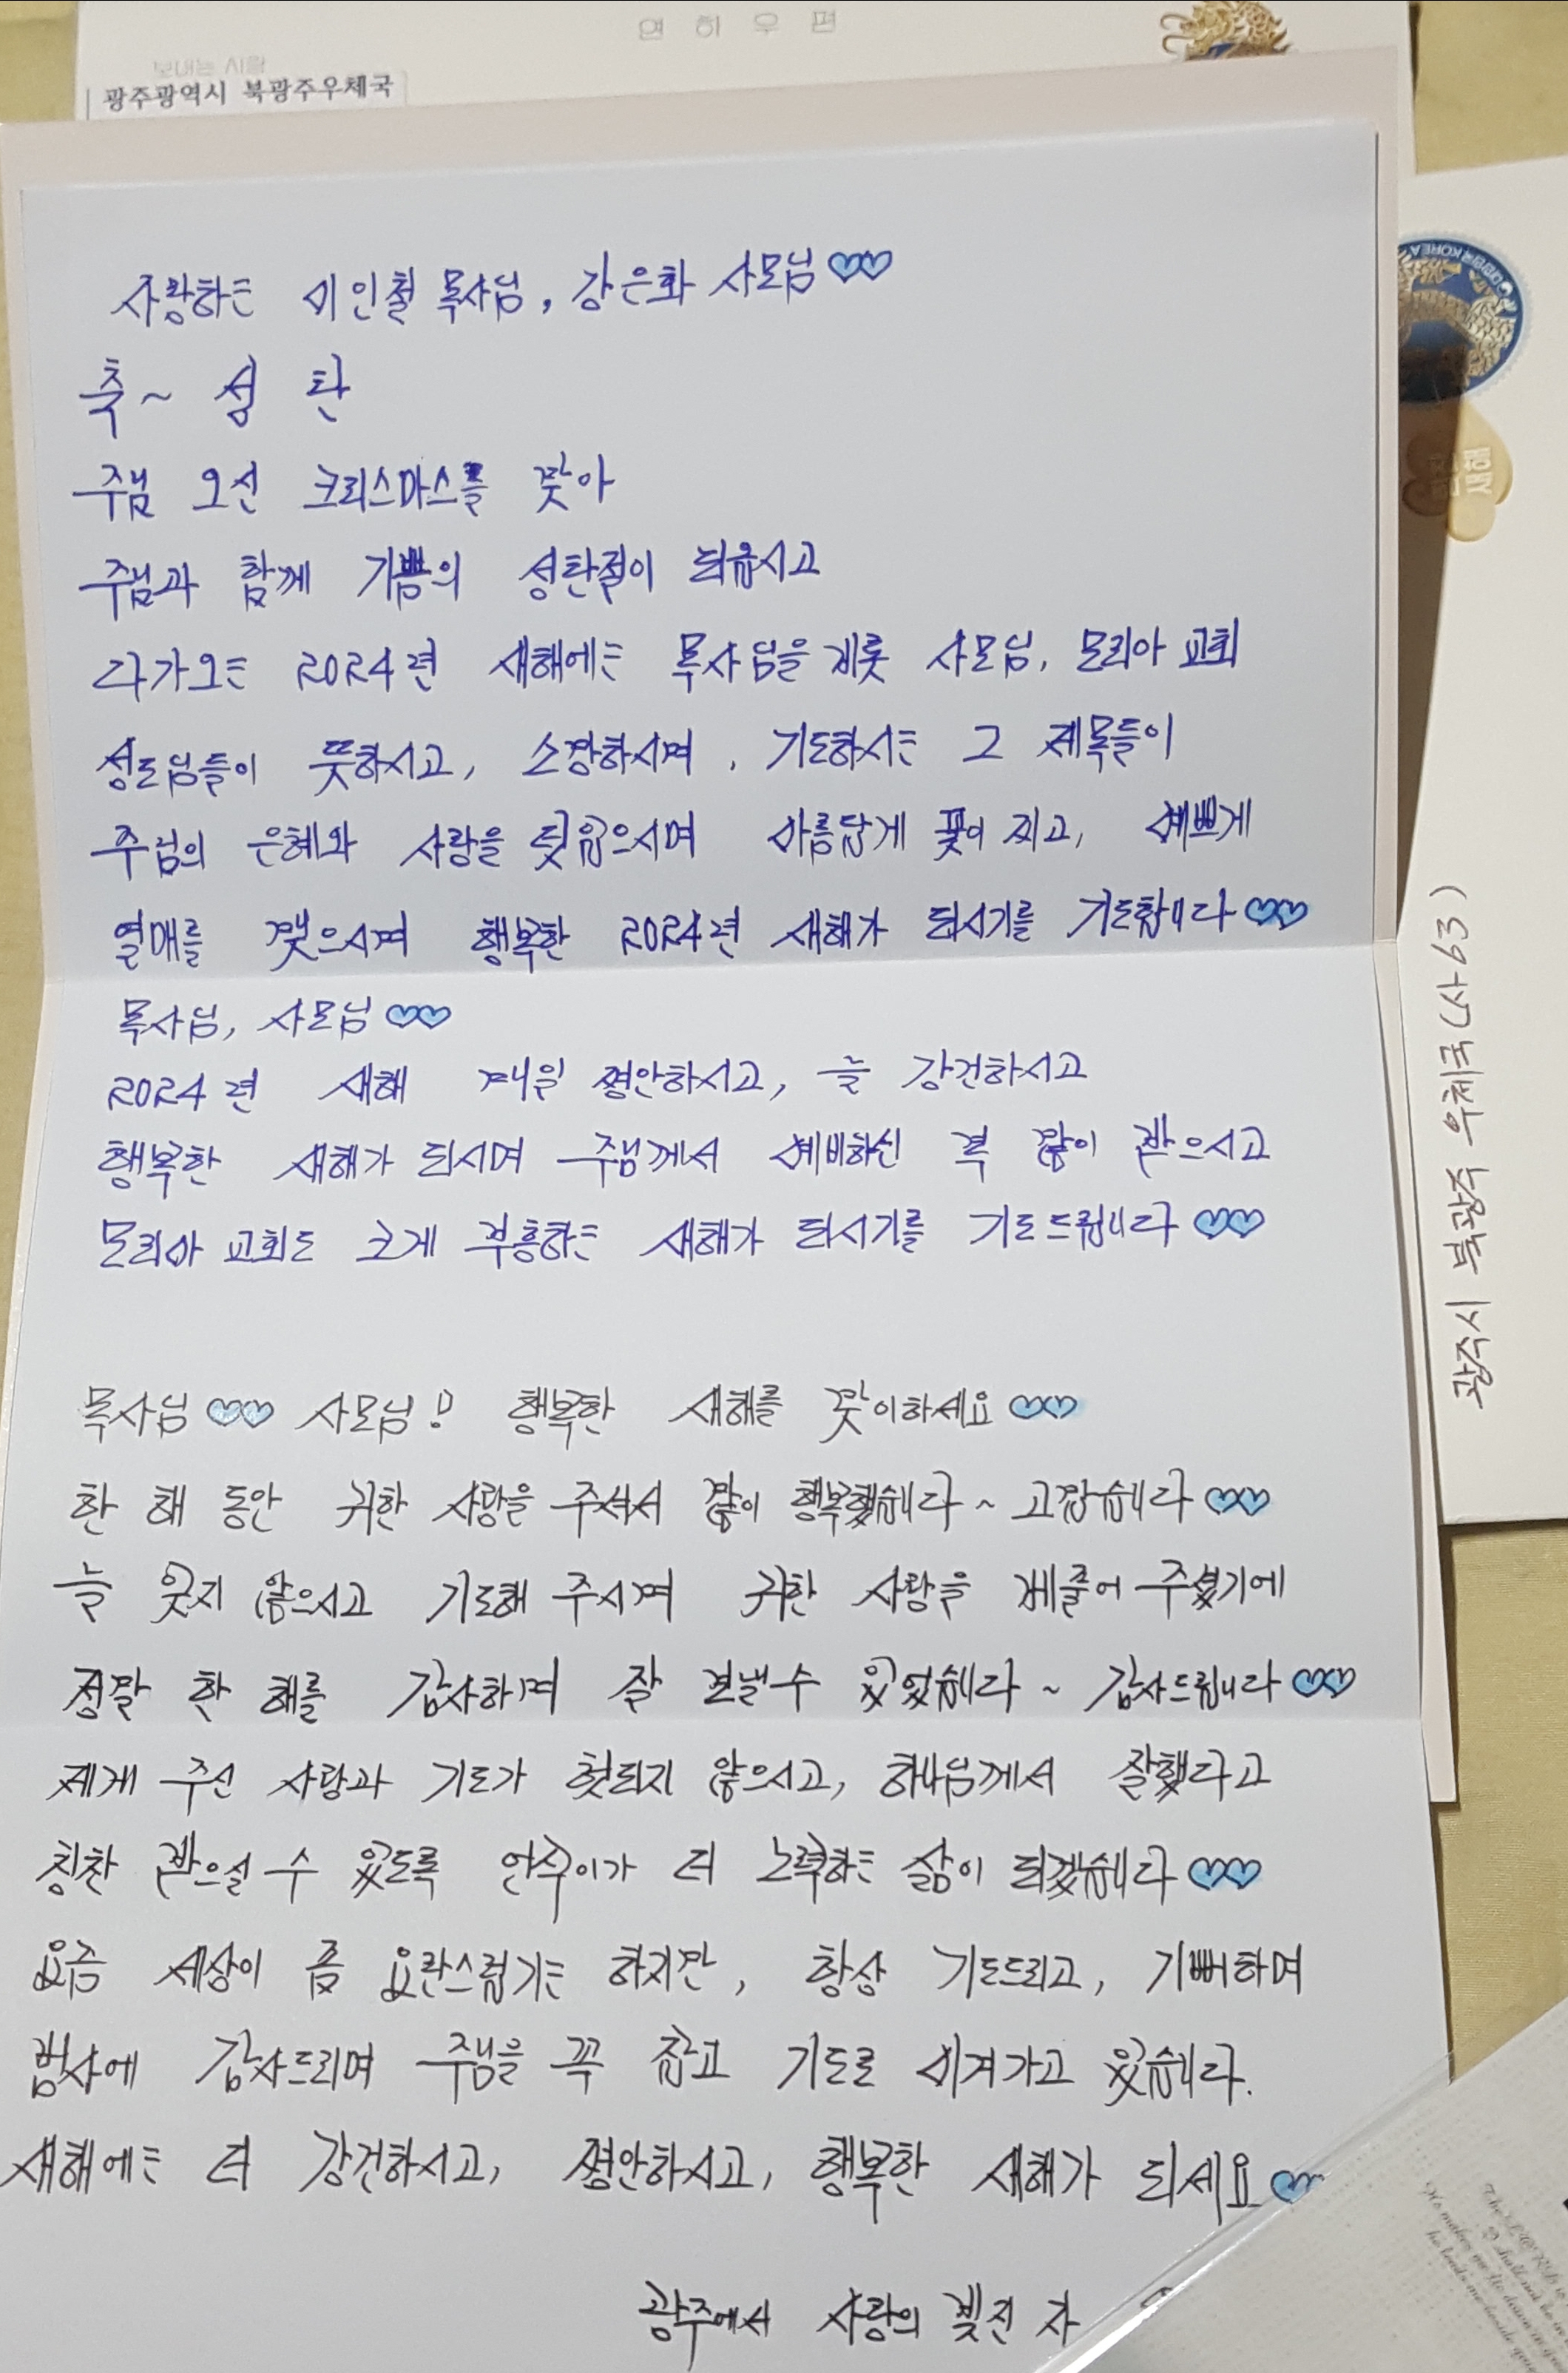 연하우편
보내는 사람
광주광역시 북광주우체국
사랑하는 이인철 목사님, 강은화 사모님♡♡
축~ 성 탄
주님 오신 크리스마스를 맞아
주님과 함께 기쁨의 성탄절이 되옵시고
다가오는 2024년 새해에는 목사님을 비롯 사모님, 모리아 교회
성도님들이 뜻하시고, 소망하시며, 기도하시는 그 제목들이
주님의 은혜와 사랑을 덧입으시며 아름답게 꽃이 피고, 예쁘게
열매를 맺으시며 행복한 2024년 새해가 되시기를 기도합니다♡♡
목사님, 사모님♡♡
2024년 새해 매일 평안하시고, 늘 강건하시고
행복한 새해가 되시며 주님께서 예비하신 복 많이 받으시고
모리아 교회도 크게 부흥하는 새해가 되시기를 기도드립니다♡♡
목사님♡♡ 사모님!! 행복한 새해를 맞이하세요♡♡
한 해 동안 귀한 사랑을 주셔서 많이 행복했습니다~ 고맙습니다♡♡
늘 잊지 않으시고 기도해 주시며 귀한 사랑을 베풀어 주셨기에
정말 한 해를 감사하며 잘 보낼 수 있었습니다~ 감사드립니다♡♡
제게 주신 사랑과 기도가 헛되지 않으시고, 하나님께서 잘했다고
칭찬 받으실 수 있도록 안숙이가 더 노력하는 삶이 되겠습니다♡♡
요즘 세상이 좀 요란스럽기는 하지만, 항상 기도드리고, 기뻐하며
범사에 감사드리며 주님을 꼭 잡고 기도로 이겨가고 있습니다.
새해에는 더 강건하시고, 평안하시고, 행복한 새해가 되세요♡
광주에서 사랑의 빚진 자
대한민국 KOREA
새해
광주시 북광주 우체국(사63)
The LORD is
I shall not be in
He makes me lie down in
he leads me beside quiet